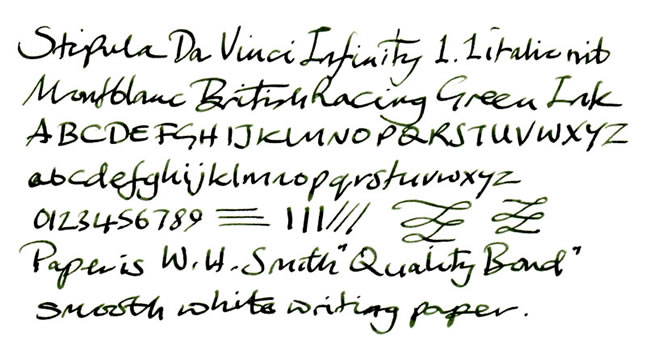 Stipula Da Vinci Infinity 1.1 italic nib
Montblanc British Racing Green Ink
ABCDEFGHIJKLMNOPQRSTUVWXYZ
abcdefghijklmnopqrstuvwxyz
0123456789
Paper is W.H. Smith "Quality Bond"
smooth white writing paper.